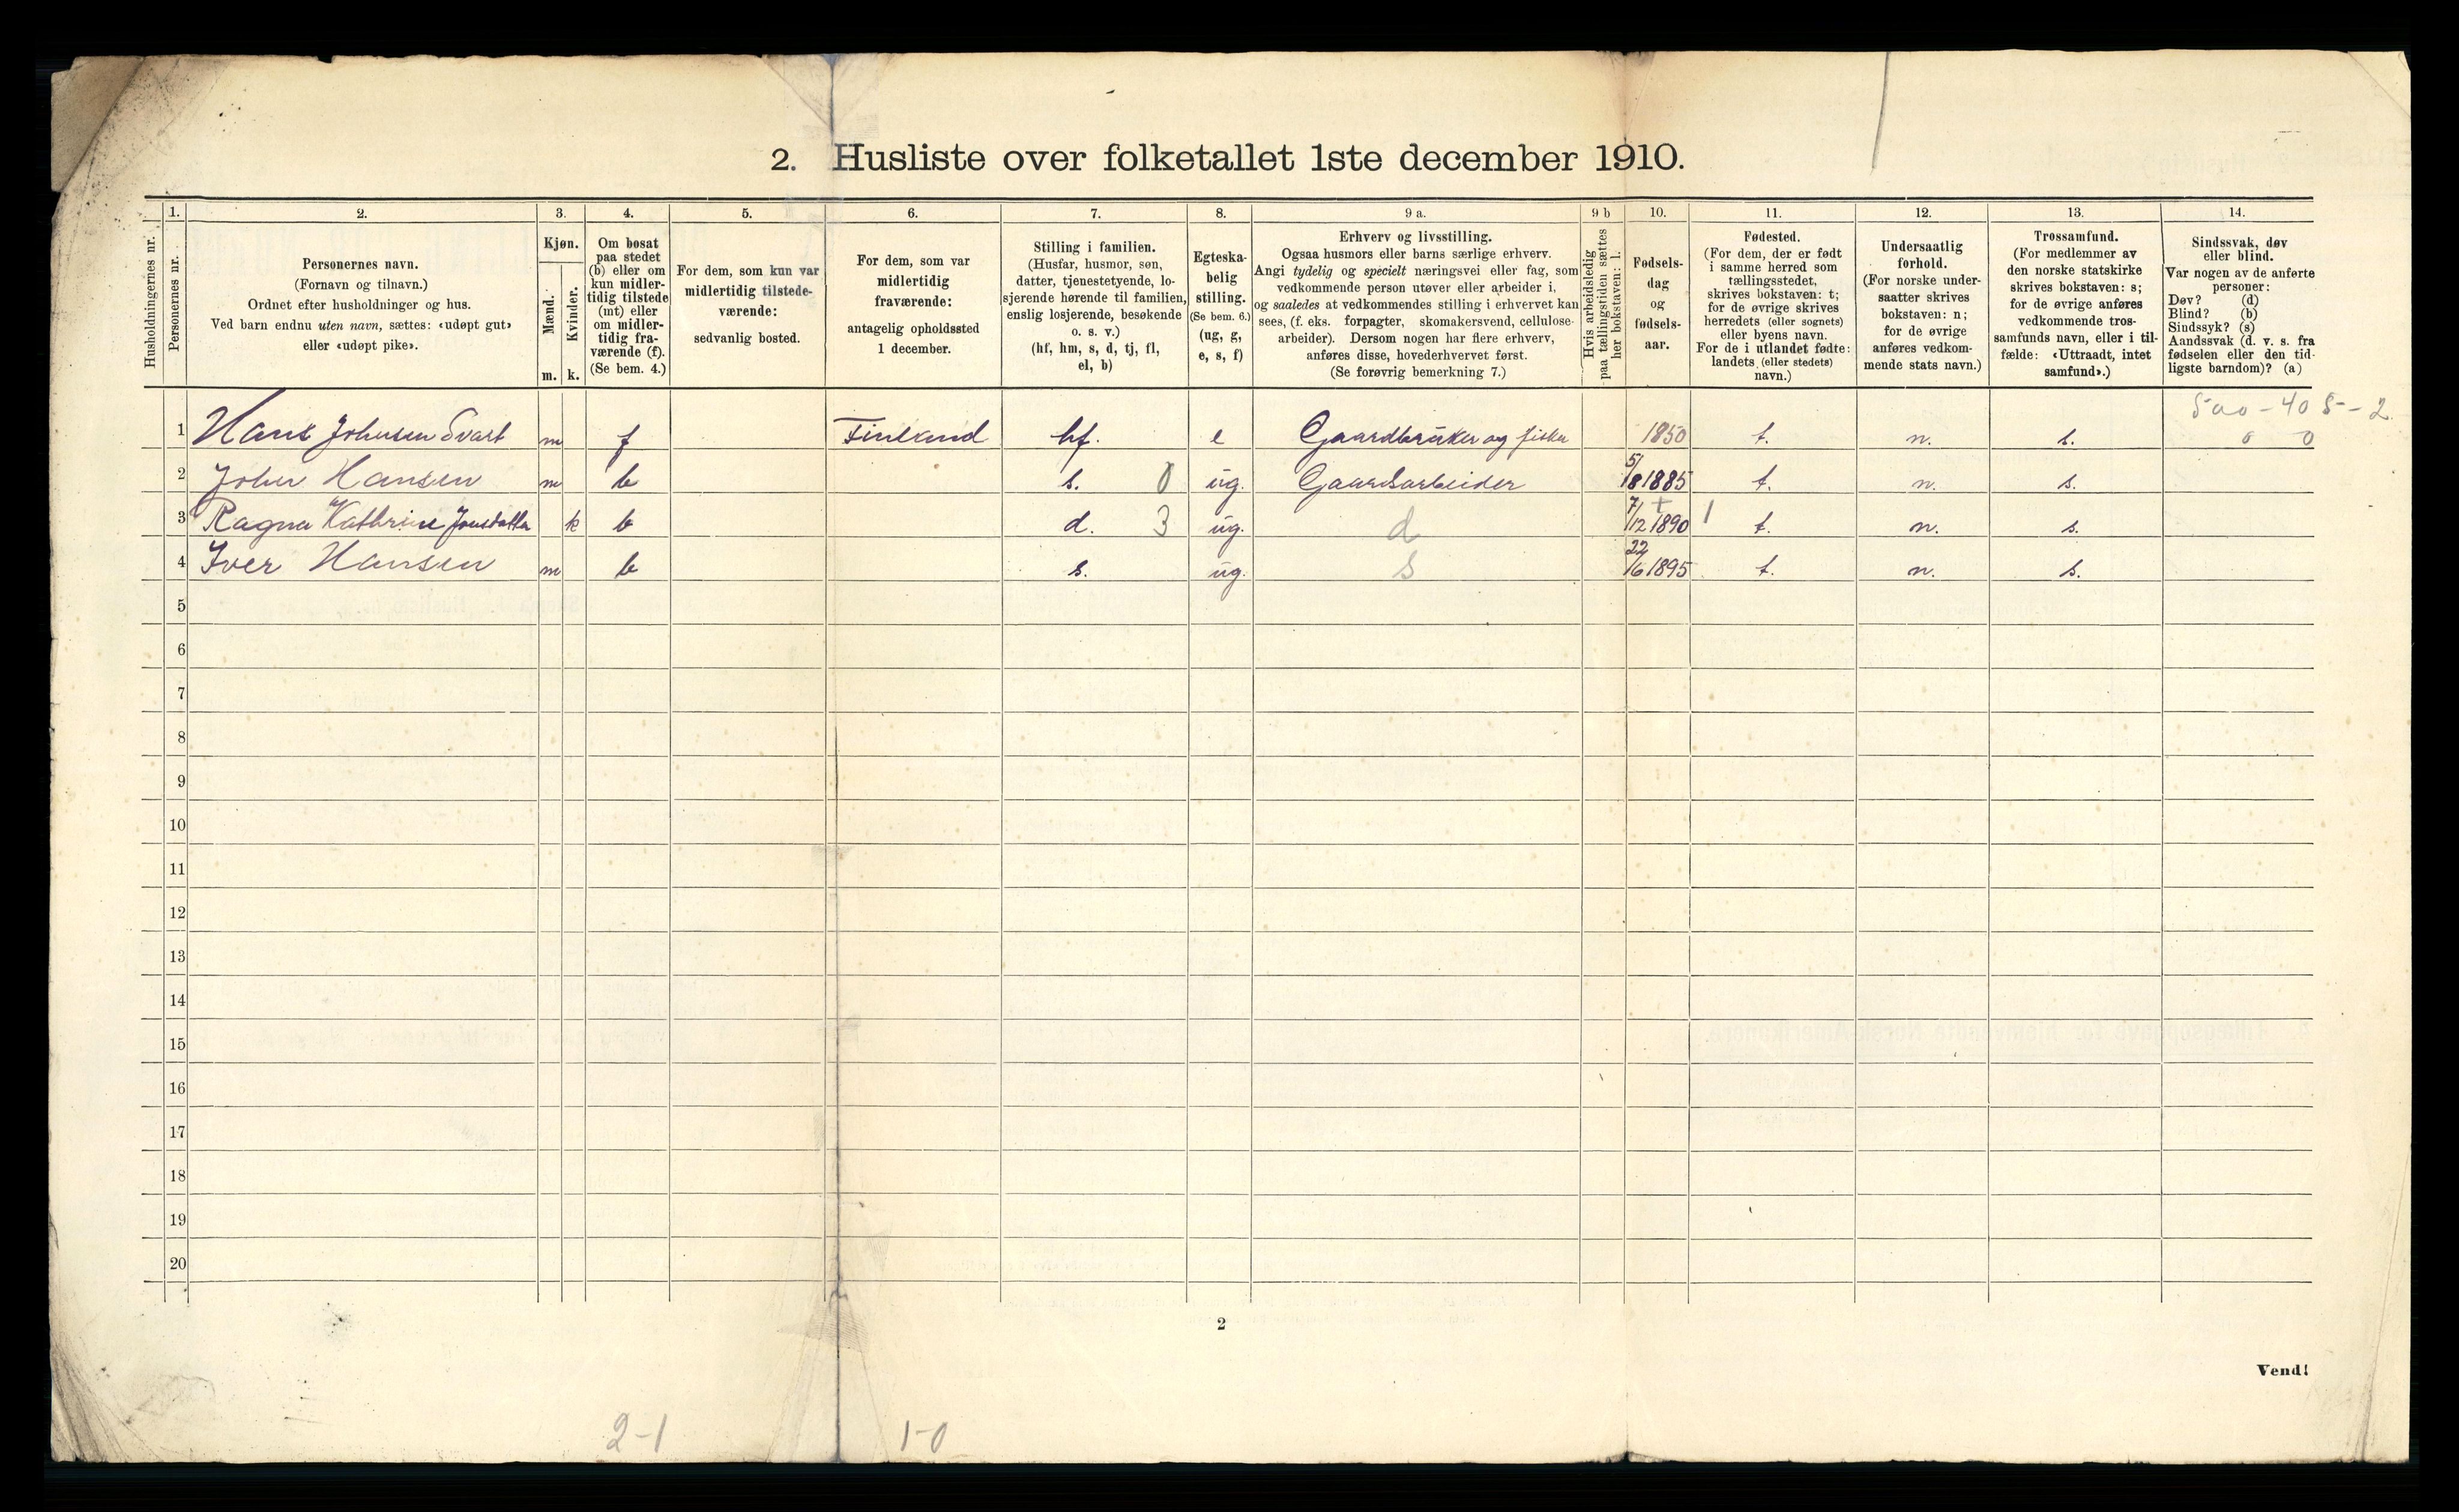 2. Husliste over folketallet 1ste december 1910.
Husholdningernes nr.
1.
Personernes nr.
2.
Personernes navn.
(Fornavn og tilnavn.)
Ordnet efter husholdninger og hus.
Ved barn endnu uten navn, sættes: «udøpt gut»
eller «udøpt pike».
3.
Kjøn.
Mænd.
Kvinder.
m. k.
4.
Om bosat
paa stedet
(b) eller om
kun midler-
tidig tilstede
(mt) eller
om midler-
tidig fra-
værende (f).
(Se bem. 4.)
5.
For dem, som kun var
midlertidig tilstede-
værende:
sedvanlig bosted.
6.
For dem, som var
midlertidig
fraværende:
antagelig opholdssted
1 december.
7.
Stilling i familien.
(Husfar, husmor, søn,
datter, tjenestetyende, lo-
sjerende hørende til familien,
enslig losjerende, besøkende
o. s. v.)
(hf, hm, s, d, tj, fl,
el, b)
8.
Egteska-
belig
stilling.
(Se bem. 6.)
(ug, g,
e, s, f)
9 a.
Erhverv og livsstilling.
Ogsaa husmors eller barns særlige erhverv.
Angi tydelig og specielt næringsvei eller fag, som
vedkommende person utøver eller arbeider i,
og saaledes at vedkommendes stilling i erhvervet kan
sees, (f. eks. forpagter, skomakersvend, cellulose-
arbeider). Dersom nogen har flere erhverv,
anføres disse, hovederhvervet først.
(Se forøvrig bemerkning 7.)
9 b
Hvis arbeidsledig
paa tællingstiden sættes
her bokstaven: l.
10.
Fødsels-
dag
og
fødsels-
aar.
11.
Fødested.
(For dem, der er født
i samme herred som
tællingsstedet,
skrives bokstaven: t;
for de øvrige skrives
herredets (eller sognets)
eller byens navn.
For de i utlandet fødte:
landets (eller stedets)
navn.)
12.
Undersaatlig
forhold.
(For norske under-
saatter skrives
bokstaven: n;
for de øvrige
anføres vedkom-
mende stats navn.)
13.
Trossamfund.
(For medlemmer av
den norske statskirke
skrives bokstaven: s;
for de øvrige anføres
vedkommende tros-
samfunds navn, eller i til-
fælde: «Uttraadt, intet
samfund».)
14.
Sindssvak, døv
eller blind.
Var nogen av de anførte
personer:
Døv? (d)
Blind? (b)
Sindssyk? (s)
Aandssvak (d. v. s. fra
fødselen eller den tid-
ligste barndom)? (a)
500 - 40 S - 2
1 Hans Johnsen Svart m f Finlennd hf. e Gaardbruker og fisker 1850 t. n. s. 0 0
2 John Hansen m b s. 0 ug. Gaardsarbeider 5/8 1885 t. n. s.
3 Ragna Kathrine k b d. 3 ug. d 7/12 1890 1 t. n. s.
4 Iver Hansen m b s. ug. s 22/6 1895 t. n. s.
5
6
7
8
9
10
11
12
13
14
15
16
17
18
19
20
2
Vend!
2-1 1-0